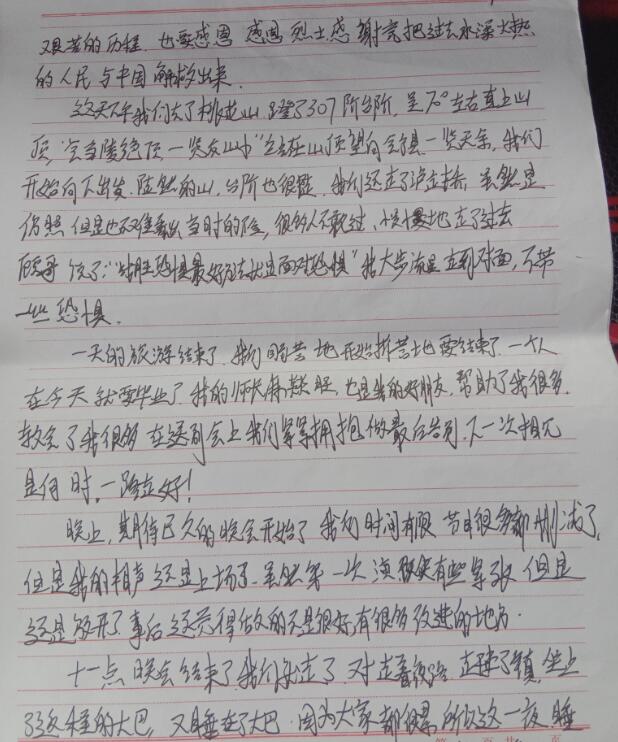 艰苦的历程,也要感恩 感恩烈士感谢党把过去水深火热
的人民与中国解救出来.
这天下午我们去了桃花山,蹬了307阶台阶,呈70°左右直上山
顶,"会当凌绝顶 一览众山小"站在山顶望向 一览无余,我们
开始向下出发,陡然的山,台阶也很陡 我们还走了 虽然是
仿照 但是也不难看出当时的险,很多人不敢过、慢慢地走了过去
说了:"战胜恐惧最好方法就是面对恐惧"我大步流星 走到对面,不带
一些恐惧.
一天的旅游结束了,我们 地 要结束了 一个人
在今天就要毕业了 我的师兄 也是我的好朋友,帮助了我很多.
教会了我很多 在送别会上我们紧紧拥抱做最后告别,下一次相见
是何时,一路走好!
晚上,期待已久的晚会开始了 时间有限 节目很多都删减了,
但是我的相声还是上场了.虽然第一次演 有些紧张 但是
还是放开了 事后还觉得做的不是很好有很多改进的地方.
十一点 晚会结束了我们出走了 走着夜路 坐上
的大巴,又睡在了大巴.因为大家都很累,所以这一夜 睡